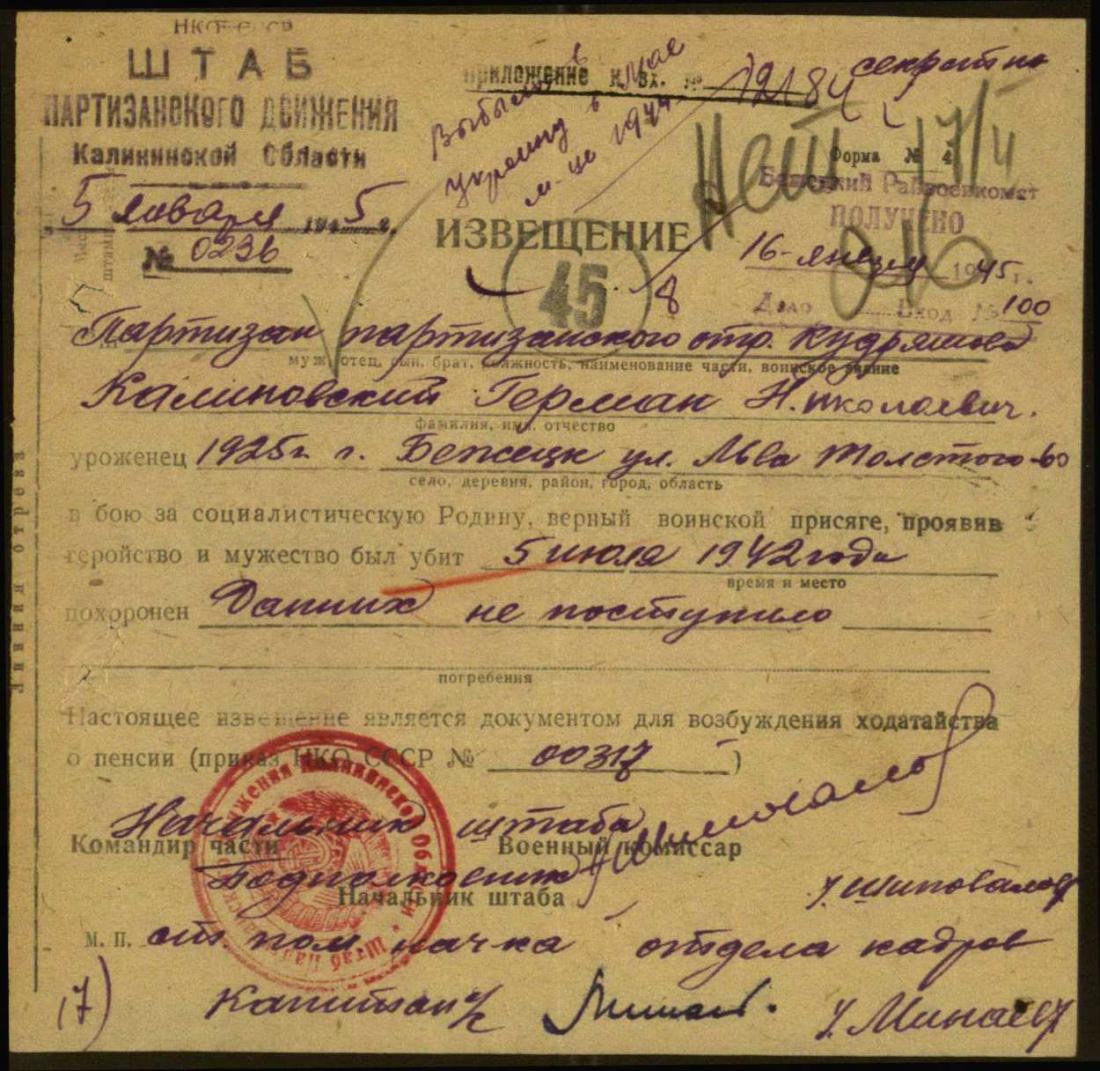 НКО СССР
ШТАБ
ПАРТИЗАНСКОГО ДВИЖЕНИЯ
Калининской Области
5 января 1945 г.
№ 0236
Приложение к вх. № 12184
секретно
Выбыли в
украину в мае
м-це 1944
Нет 17/4
Форма № 4
Бежецкий Райвоенкомат
ПОЛУЧЕНО
16-январ 1945 г.
Дело Вход № 100
ИЗВЕЩЕНИЕ
45
8
Партизан партизанского отр. Кудряшова
муж, отец, сын, брат, должность, наименование части, воинское звание
Калиновский Герман Николаевич.
фамилия, имя, отчество
уроженец 1925 г. г. Бежецк ул. Льва Толстого-60
село, деревня, район, город, область
в бою за социалистическую Родину, верный воинской присяге, проявив
геройство и мужество был убит 5 июля 1942 года
время и место
похоронен Данних не поступило
погребения
Настоящее извещение является документом для возбуждения ходатайства
о пенсии (приказ НКО СССР № 00317)
Начальник штаба
Командир части Военный комиссар
Подполковник
Начальник штаба
/Шиповалов/
М. П. ст. пом. нач-ка отдела кадров
Капитан а/с /Минаев/
(7)
линия отреза